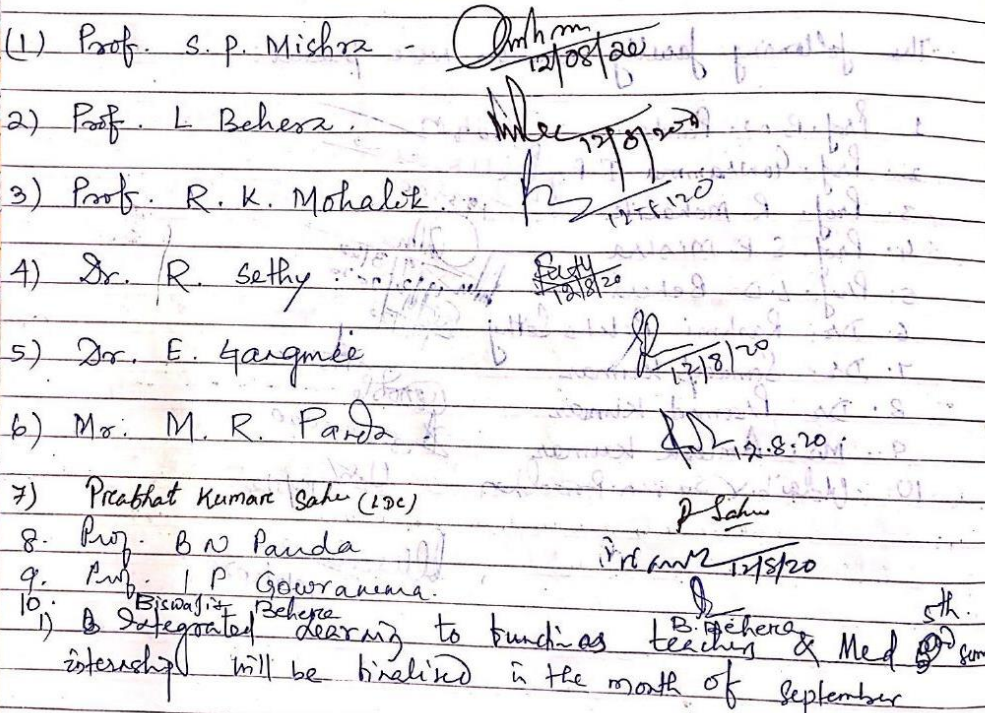 (1) Prof. S. P. Mishra - 12/08/20
2) Prof. L Behera. 12/8/2020
3) Prof. R. K. Mohalik. 12/8/20
4) Dr. R. Sethy Sethy 12/8/20
5) Dr. E. Gangmei 12/8/20
6) Mr. M. R. Panda 12.8.20.
7) Prabhat Kumar Sahu (LDC) P Sahu
8. Prof. B N Panda 12/8/20
9. Prof. I P Gowramma.
10. Biswajit Behera B. Behera 5th.
1) Integrated learning to function as teachers & Med sem
internship will be finalised in the month of September